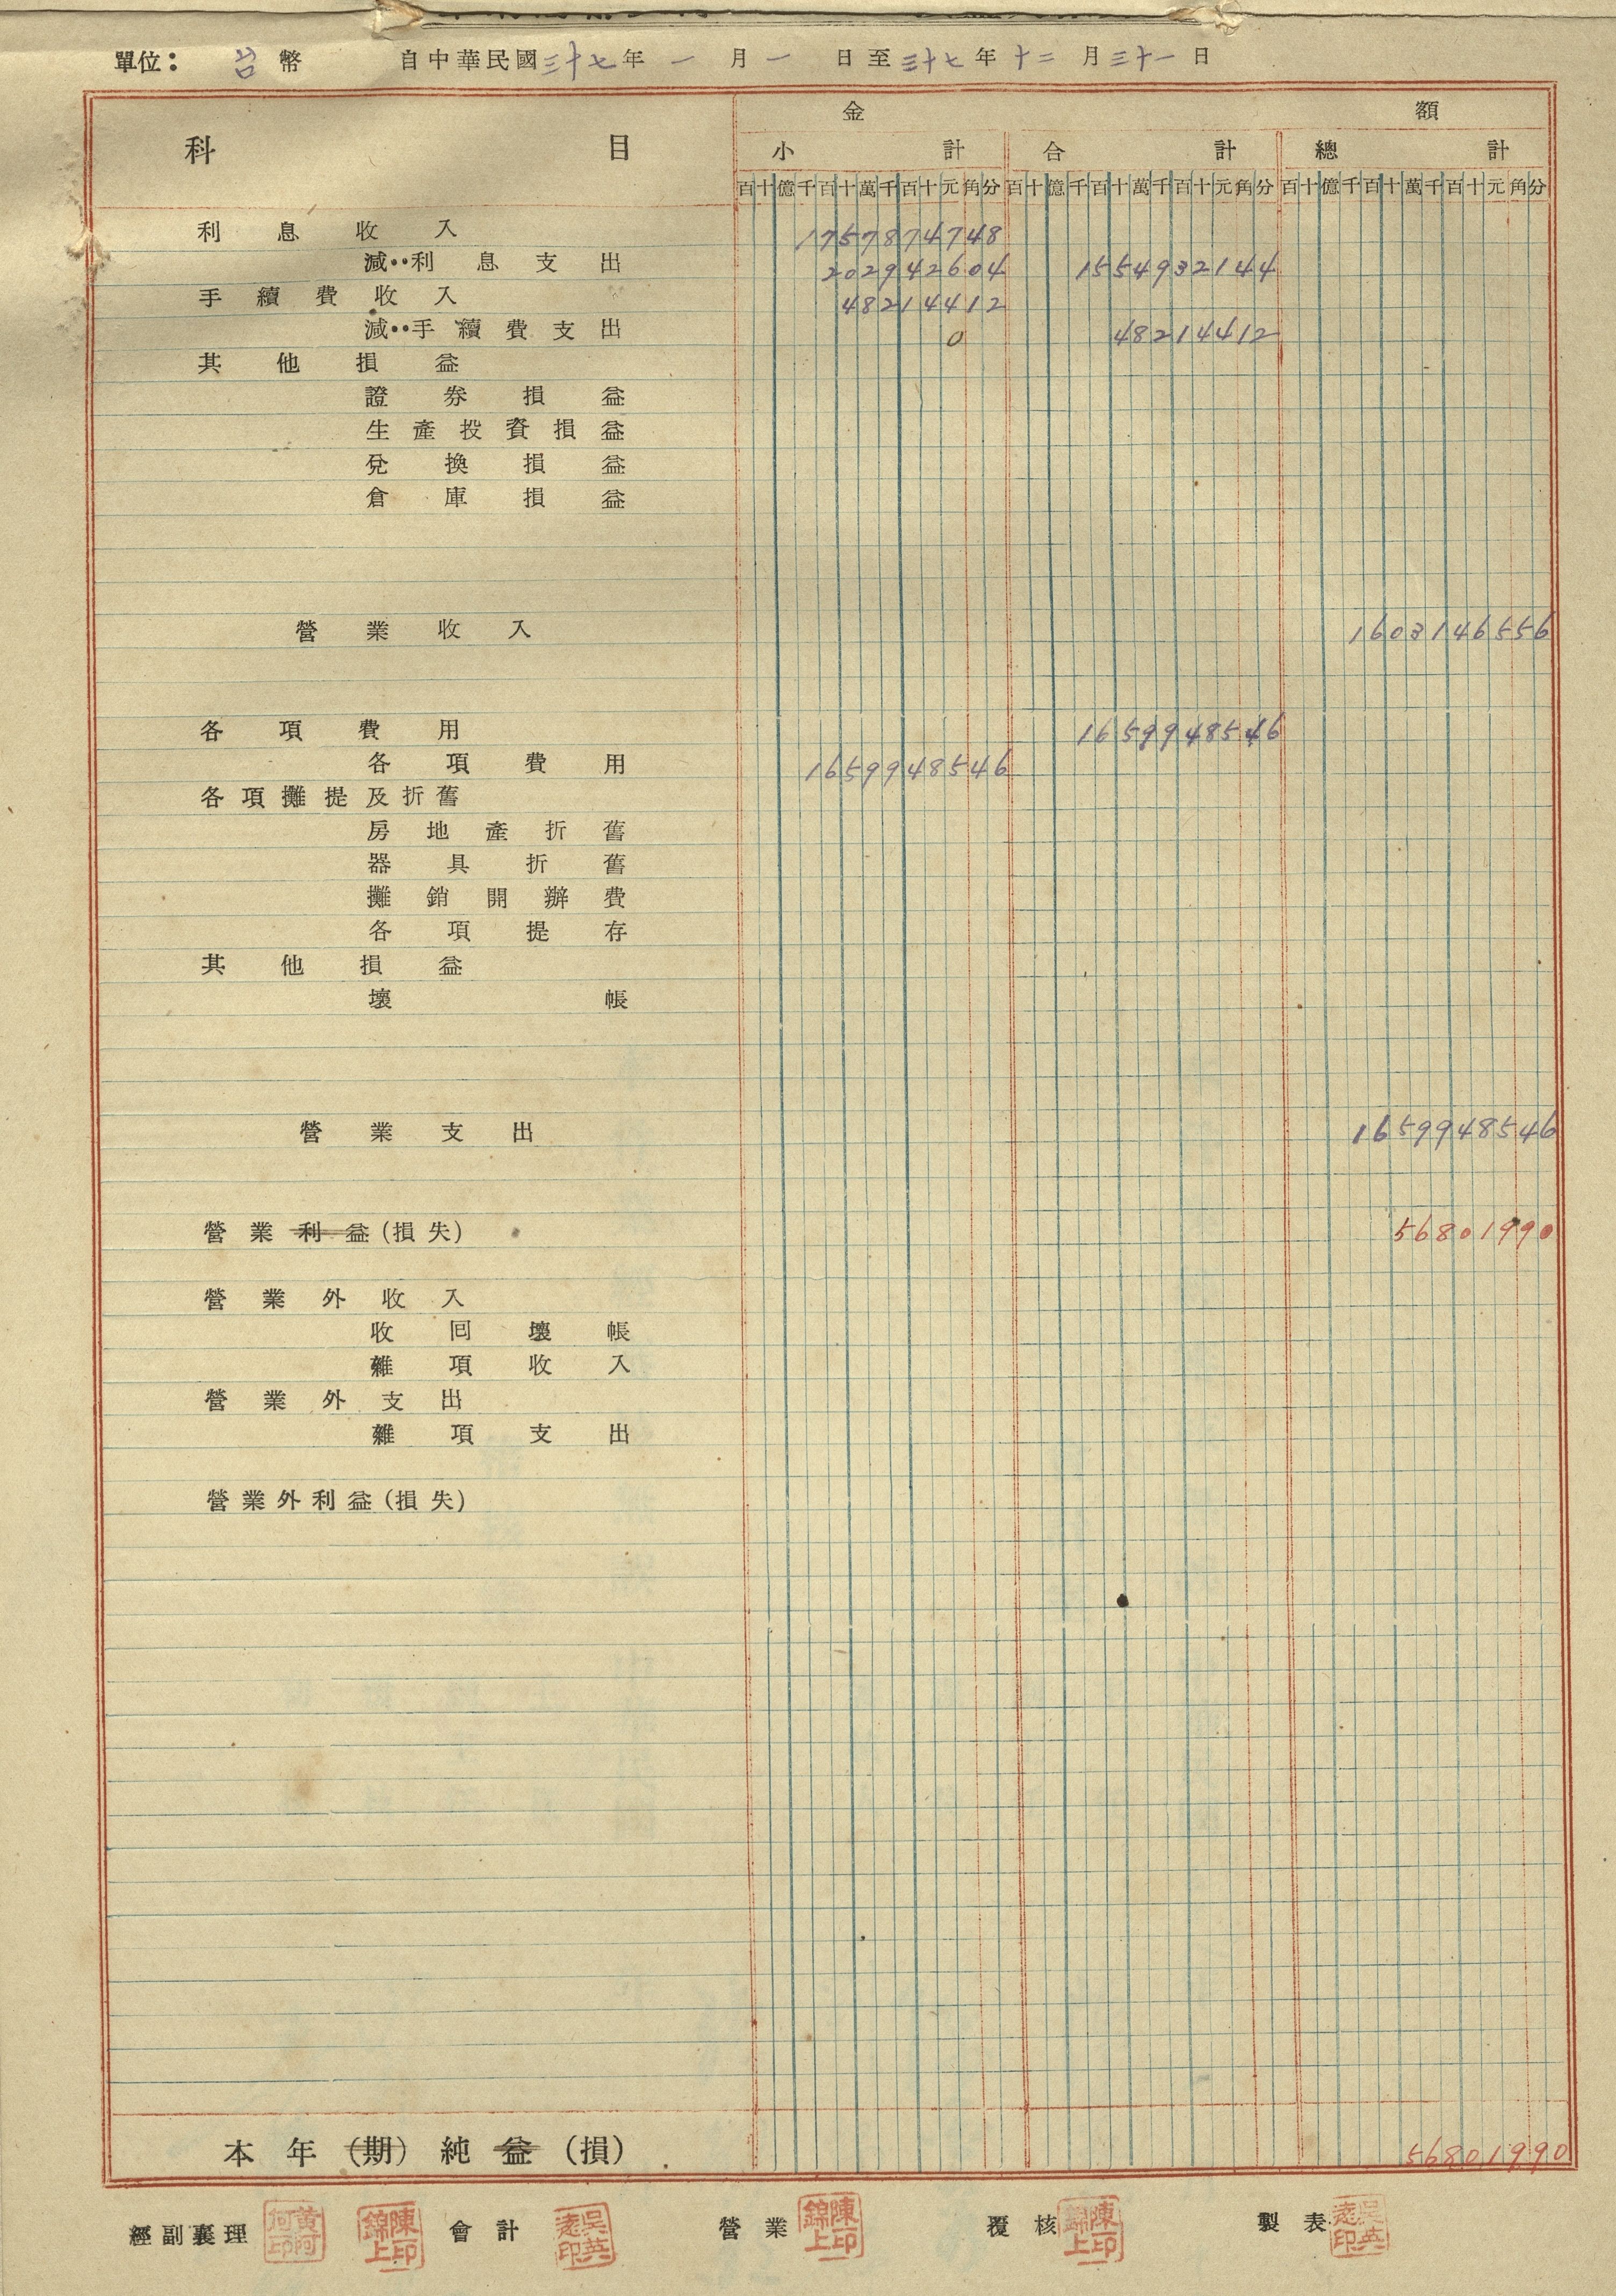 單位：台幣 自中華民國三十七年一月一日至三十七年十二月三十一日
科目 金額
小計 合計 總計
百十億千百十萬千百十元角分 百十億千百十萬千百十元角分 百十億千百十萬千百十元角分
利息收入 1757874748
減：利息支出 202942604 1554932144
手續費收入 48214412
減：手續費支出 0 48214412
其他損益
證券損益
生產投資損益
兌換損益
倉庫損益
營業收入 1603146556
各項費用 1659948546
各項費用 1659948546
各項攤提及折舊
房地產折舊
器具折舊
攤銷開辦費
各項提存
其他損益
壞帳
營業支出 1659948546
營業利益(損失) 56801990
營業外收入
收回壞帳
雜項收入
營業外支出
雜項支出
營業外利益(損失)
本年(期)純益(損) 56801990
經副襄理 陳印錦上 會計 營業 陳印錦上 覆核 陳印錦上 製表